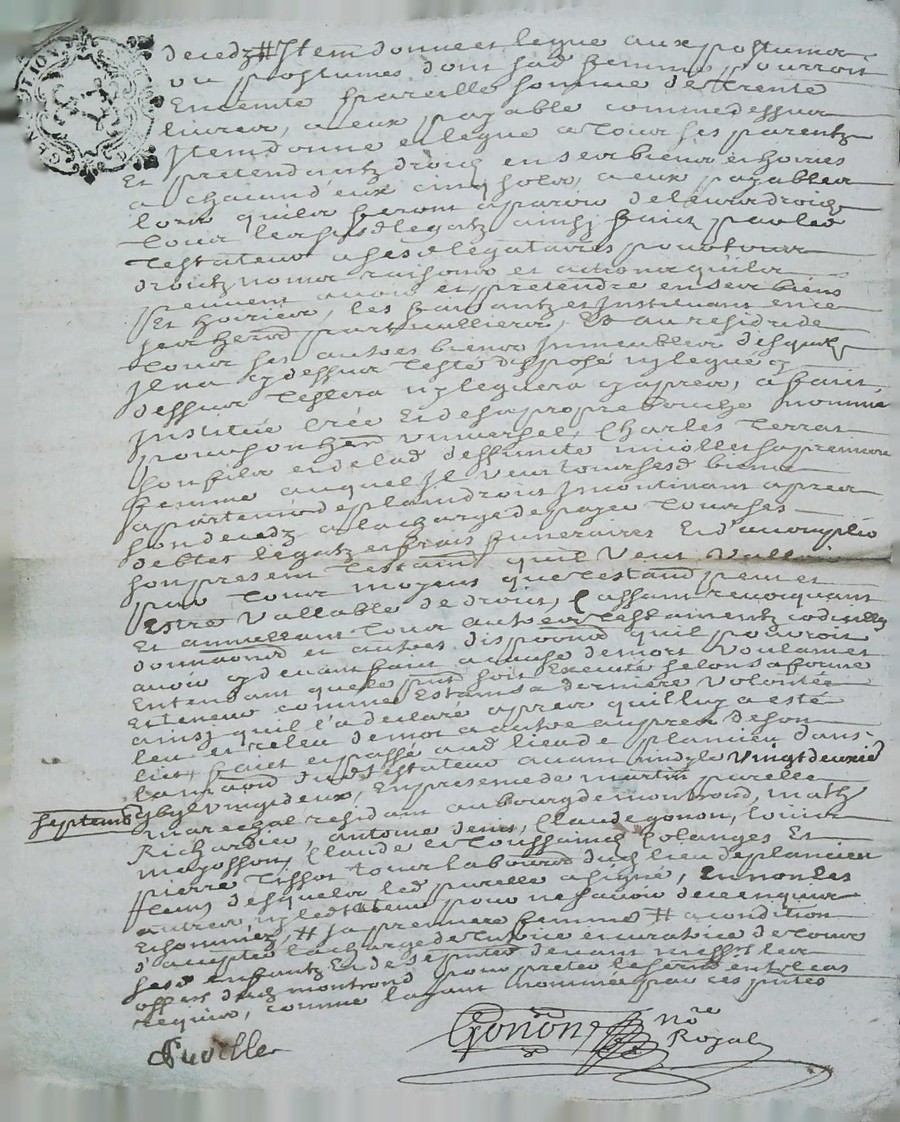 decedz # Item donne et legue aux postumes
ou postumes dont sad. femme pourroit
Enceinte pareille somme de trente
livres, a eux payable comme dessus
Item donne et legue a tous ses parentz
Et pretendantz droictz en ses biens et hoiries
a chacun d'eux cinq solz, a eux payables
lors quilz feront aparoir de leurs droictz
tous lesquelz legatz ainsy faictz par led.
testateur a ses d. legataires pour tous
droictz noms raisons et actions quilz
peuvent avoir et pretendre en ses biens
Et hoiries, les faisantz et Instituant en ce
ses herd. particulliers, Et au residu de
tous ses autres biens Immeubles desquelz
Il n'a cy dessus testé disposé ny legué cy
dessus testera ny leguera cy apres, a faict
Institué créé Et de sa propre bouche nommé
pour son herd. universel, Charles terrat
son filz et de lad. deffunte miolles sa premiere
femme auquel Il veut tous sesd. biens
apartenir de plain droict Incontinant apres
son decedz a la charge de payer tous ses
debtes legatz et frais funeraires Et d'accomplir
son present testam. quil veut valloir
par tous moyens que testam. peut et
Estre vallable de droict, Cassant revocquant
Et annullant tous autres testamentz codicilles
donnaons et autres dispoons quil pouvoit
avoir cy devant faict a cause de mort voulant et
Entendant que le pnt soit Executé selon sa forme
Et teneur comme Estant sa derniere volontée
ainsy quil l'a declaré apres quil luy a esté
leu et releu de mot a autre aupres de son
lict, faict et passé aud. lieu de plancieu dans
la maon dud. testateur avant midy le vingt deuxie
septemb
vingt deux, En presence de martin parelle
marechal residant au bourg de montrond, math
Richardier, antoine denis, Claude gonon, louis
mazosson, Claude et toussainct Colanges Et
pierre tissot tous laboureurs dud. lieu de plancieu
tesm. desquelz led. parelle a signé, Et non les
autres ny led. testateur pour ne sçavoir de ce enquis
Et sommez, # sa premiere femme # a condition
d'accepter la charge de tutrice et curatrice de tous
sesd. enfantz Et de se pnter devant mess.rs les
offers dud. montrond pour preter le serm. en tel cas
requis, comme layant nommée par ces pntes
Puvelle
Gonon No.re
Royal